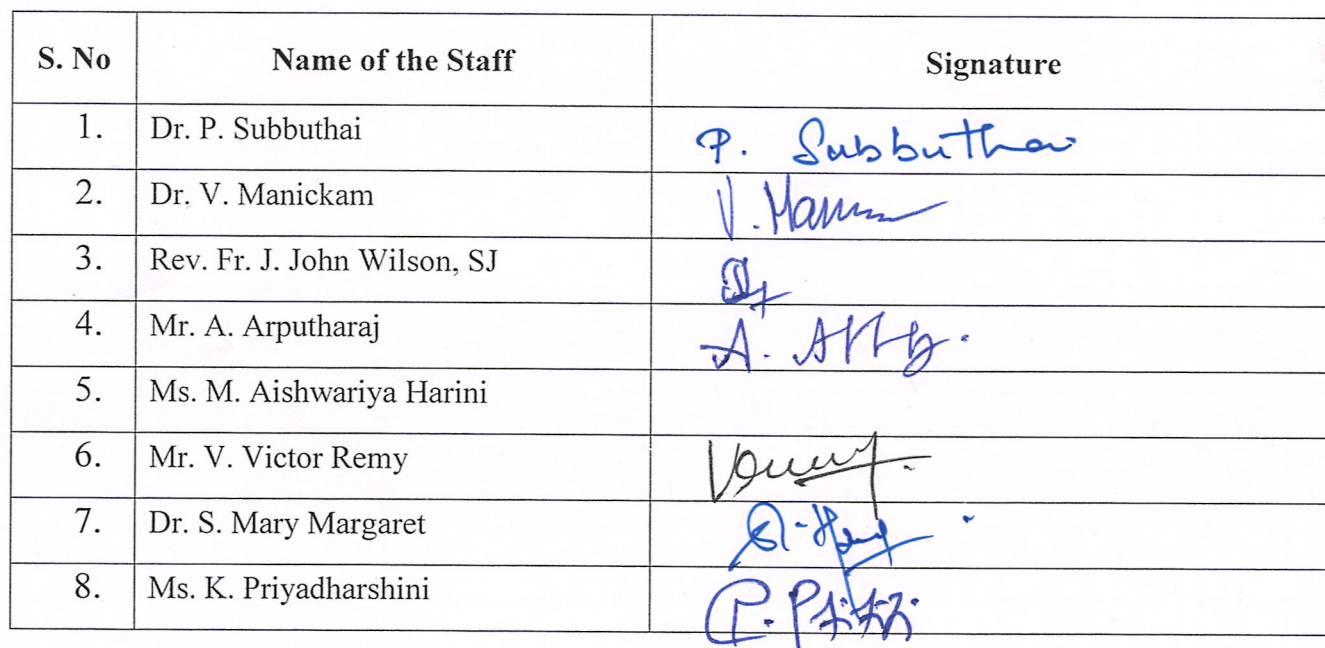 S. No Name of the Staff Signature
1. Dr. P. Subbuthai P. Subbuthai
2. Dr. V. Manickam V.
3. Rev. Fr. J. John Wilson, SJ
4. Mr. A. Arputharaj A.
5. Ms. M. Aishwariya Harini
6. Mr. V. Victor Remy
7. Dr. S. Mary Margaret
8. Ms. K. Priyadharshini